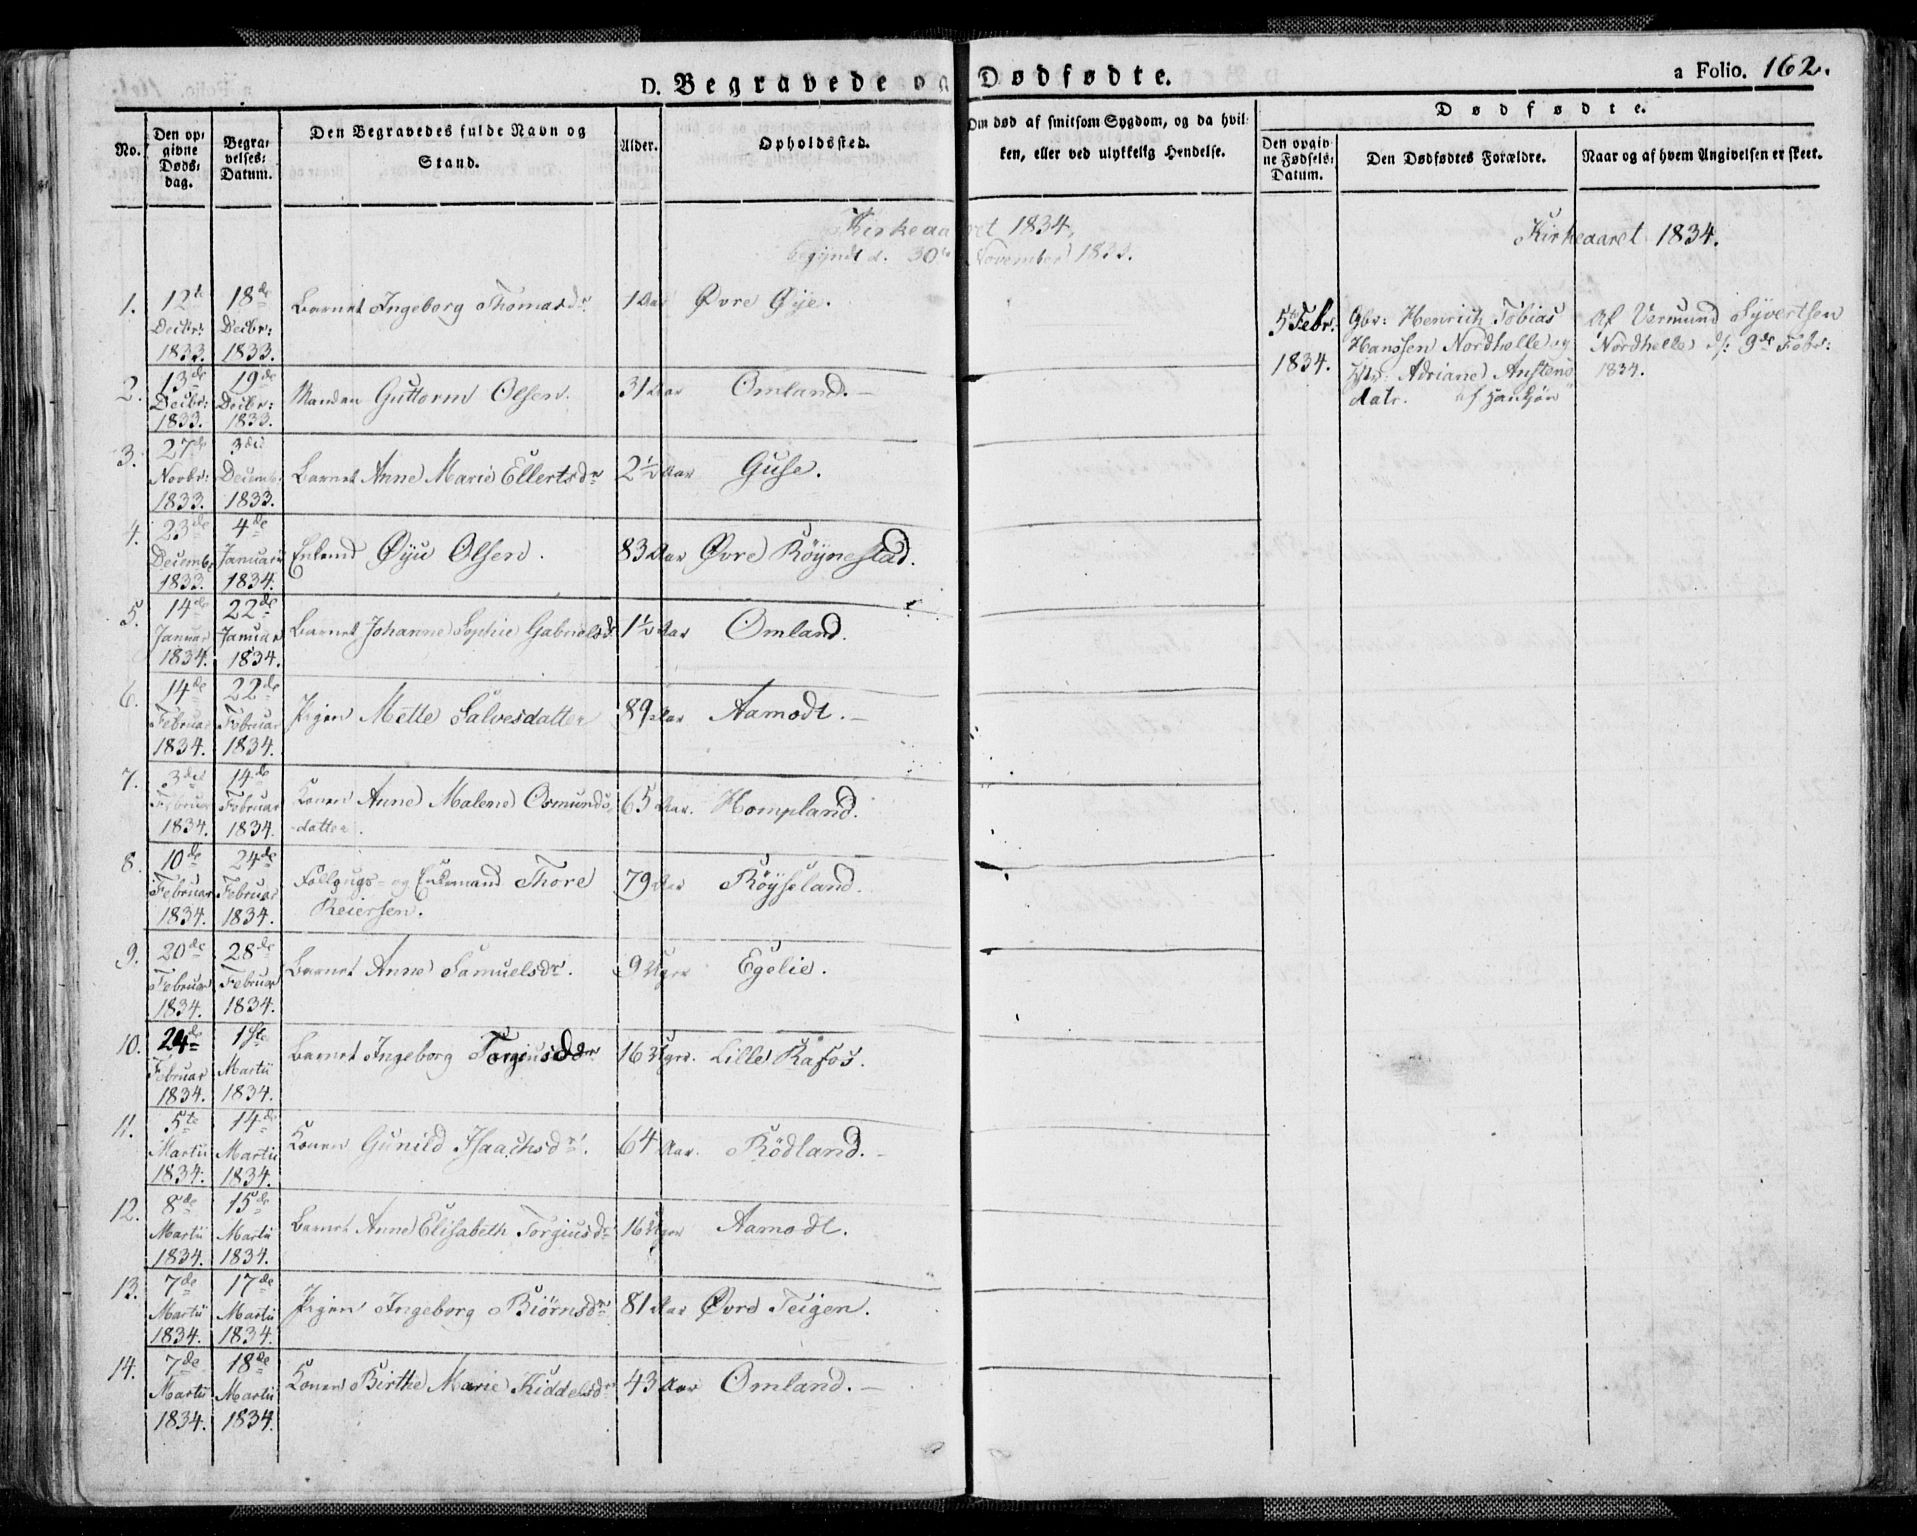 D. Begravede og Dødfødte.
a Folio. 162.
No.
Den op-
givne
Døds-
dag.
Begra-
velses-
Datum.
Den Begravedes fulde Navn og
Stand.
Alder.
Opholdssted.
Om død af smitsom Sygdom, og da hvil-
ken, eller ved ulykkelig Hendelse.
Dødfødte.
Den opgiv-
ne Fødsels-
Datum.
Den Dødfødtes Forældre.
Naar og af hvem Angivelsen er skeet.
Kirkeaaret 1834,
begyndt d. 30te November 1833.
Kirkeaaret 1834.
1. 12te Decbr: 1833. 18de Decbr: 1833. Barnet Ingeborg Thomasdr 1 Aar Øvre Øye.
2. 13de Decbr: 1833. 19de Decbr: 1833. Manden Guttorm Olsen. 31 Aar Omland.
3. 27de Novbr: 1833. 3die Decemb. 1833. Barnet Anne Marie Ellertsdr 2½ Aar Guse.
4. 23de Decemb. 1833. 4de Januar 1834. Enkemd Øyu Olsen. 83 Aar Øvre Röynestad.
5. 14de Januar 1834. 22de Januar 1834. Barnet Johanne Sophie Gabrielsdr 1½ Aar Omland.
6. 14de Februar 1834. 22de Februar 1834. Pigen Mette Salvesdatter 89 Aar Aamodt.
7. 3die Februar 1834. 14de Februar 1834. Konen Anne Malene Osmunds-
datter. 65 Aar. Hompland.
8. 10de Februar 1834. 24de Februar 1834. Follaugs- og Enkemand Thore
Reiersen. 79 Aar Röyseland.
9. 20de Februar 1834. 28de Februar 1834. Barnet Anne Samuelsdr. 9 Uger Egelie.
10. 24de Februar 1834. 1ste Martii 1834. Barnet Ingeborg Torgiusddr 16 Uger. Lille Rafos.
11. 5te Martii 1834. 14de Martii 1834. Konen Gunild Isaachsdr. 64 Aar. Rödland.
12. 8de Martii 1834. 15de Martii 1834. Barnet Anne Elisabeth Torgiusdr 16 Uger Aamodt.
13. 7de Martii 1834. 17de Martii 1834. Pigen Ingeborg Biörnsdr 81 Aar Øvre Teigen.
14. 7de Martii 1834. 18de Martii 1834. Konen Birthe Marie Kiddelsdr 43 Aar Omland.
5te Febr. 1834.
Gbr: Henrich Tobias
Hanssen Nordhelle og
Hstr. Adriane Austens-
datr. af Hankjön
Af Vermund Syvertsen
Nordhelle d: 9de Febr:
1834.